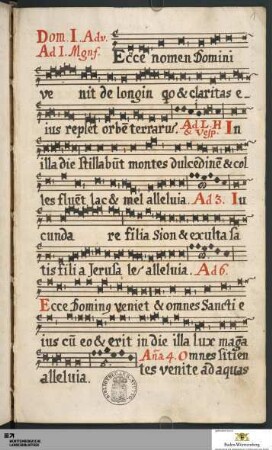 Dom. I. Adv.
Ad I. Mgnf.
Ecce nomen Domini
ve nit de longin qo & claritas e
ius replet orbē terrarū. Ad L. H In
Vesp.
illa die stillabūt montes dulcedinē & col
les fluēt lac & mel alleluia. Ad 3. Iu
cunda re filia Sion & exulta sa
tis filia Jerusa le/ alleluia. Ad 6.
Ecce Dominq veniet & omnes Sancti e
ius cū eo & erit in die illa lux maga
Aña 4. Omnes sitien
alleluia. tes venite ad aquas
Baden-Württemberg